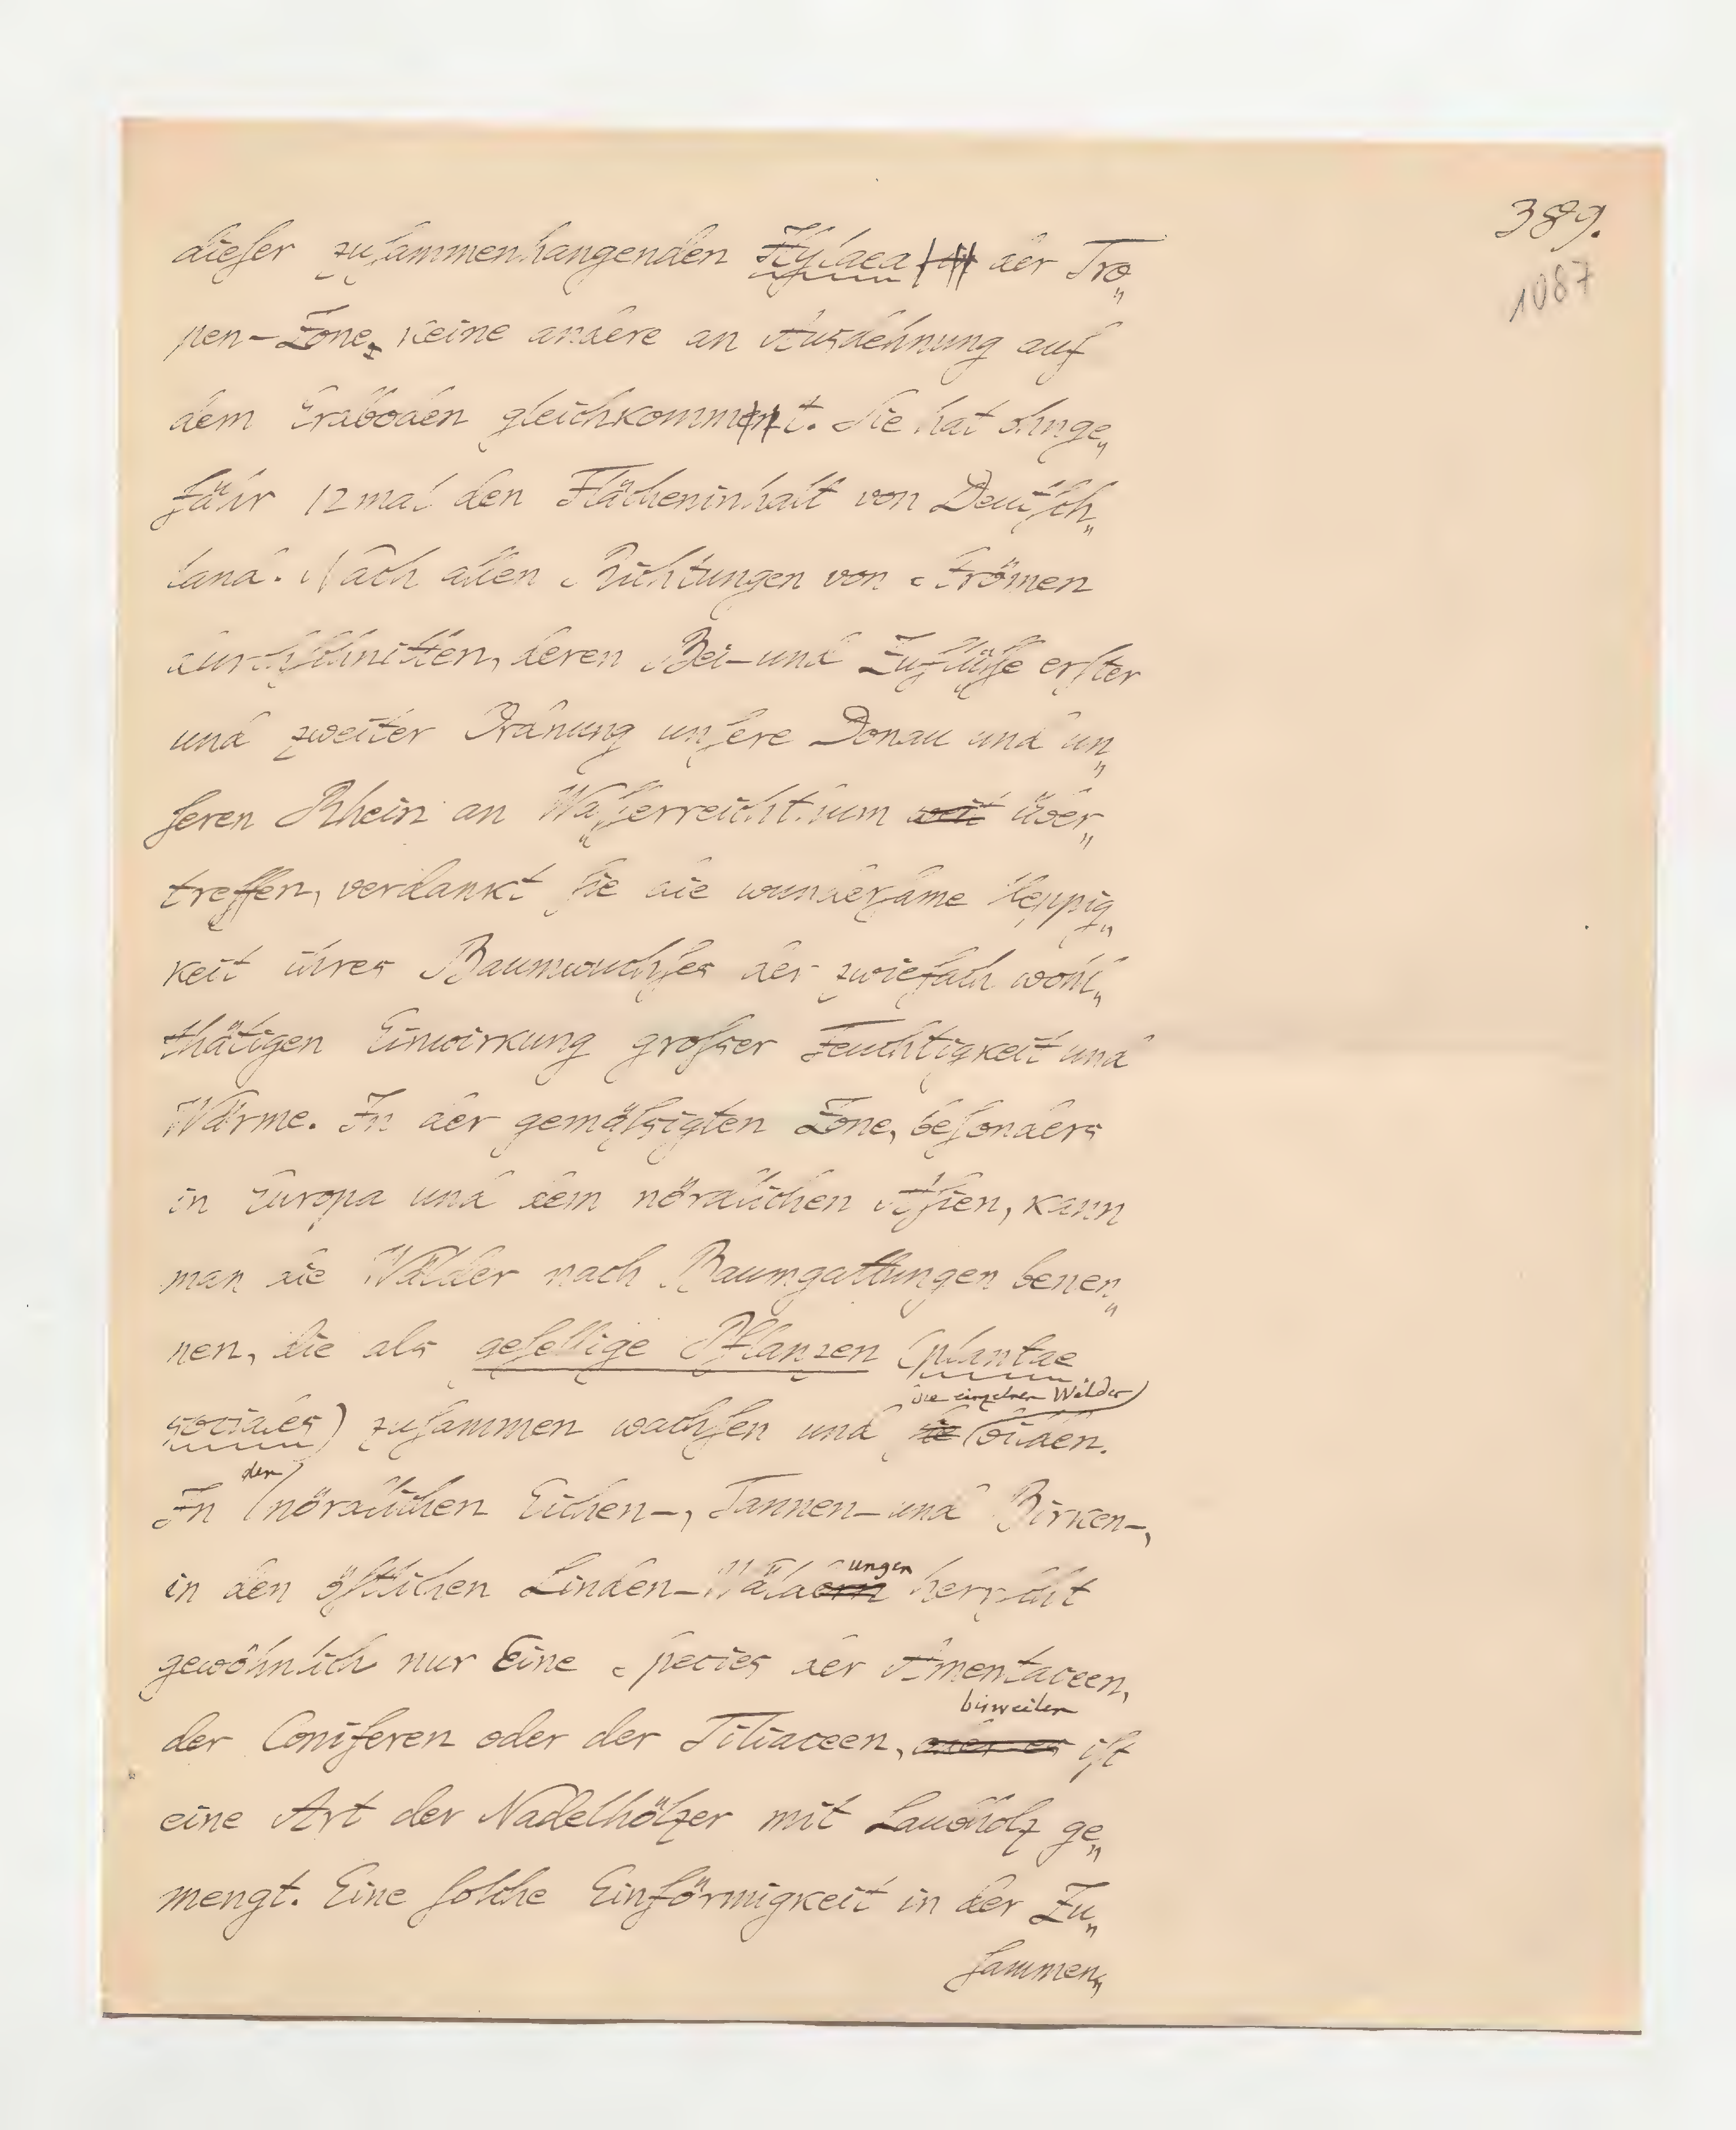 389.
1087
dieser zusammenhangenden Hylaea der Tro„
pen-Zone, keine andere an Ausdehnung auf
dem Erdboden gleichkommt. Sie hat ohnge„
fähr 12mal den Flächeninhalt von Deutsch„
land. Nach allen Richtungen von Strömen
durchschnitten, deren Bei- und Zuflüsse erster
und zweiter Ordnung unsere Donau und un„
seren Rhein an Wasserreichthum weit über„
treffen, verdankt sie die wundersame Ueppig„
keit ihres Baumwuchses der zwiefach wohl„
thätigen Einwirkung großer Feuchtigkeit und
Wärme. In der gemäßigten Zone, besonders
in Europa und dem nördlichen Asien, kann
man die Wälder nach Baumgattungen benen„
nen, die als gesellige Pflanzen (plantae
die einzelnen Wälder
sociales) zusammen wachsen und sie bilden.
den
In nördlichen Eichen-, Tannen- und Birken-,
ungen
in den östlichen Linden-Wäldern herrscht
gewöhnlich nur Eine Species der Amentaceen,
bisweilen
der Coniferen oder der Tiliaceen, oder es ist
eine Art der Nadelhölzer mit Laubholz ge„
mengt. Eine solche Einförmigkeit in der Zu„
sammen„